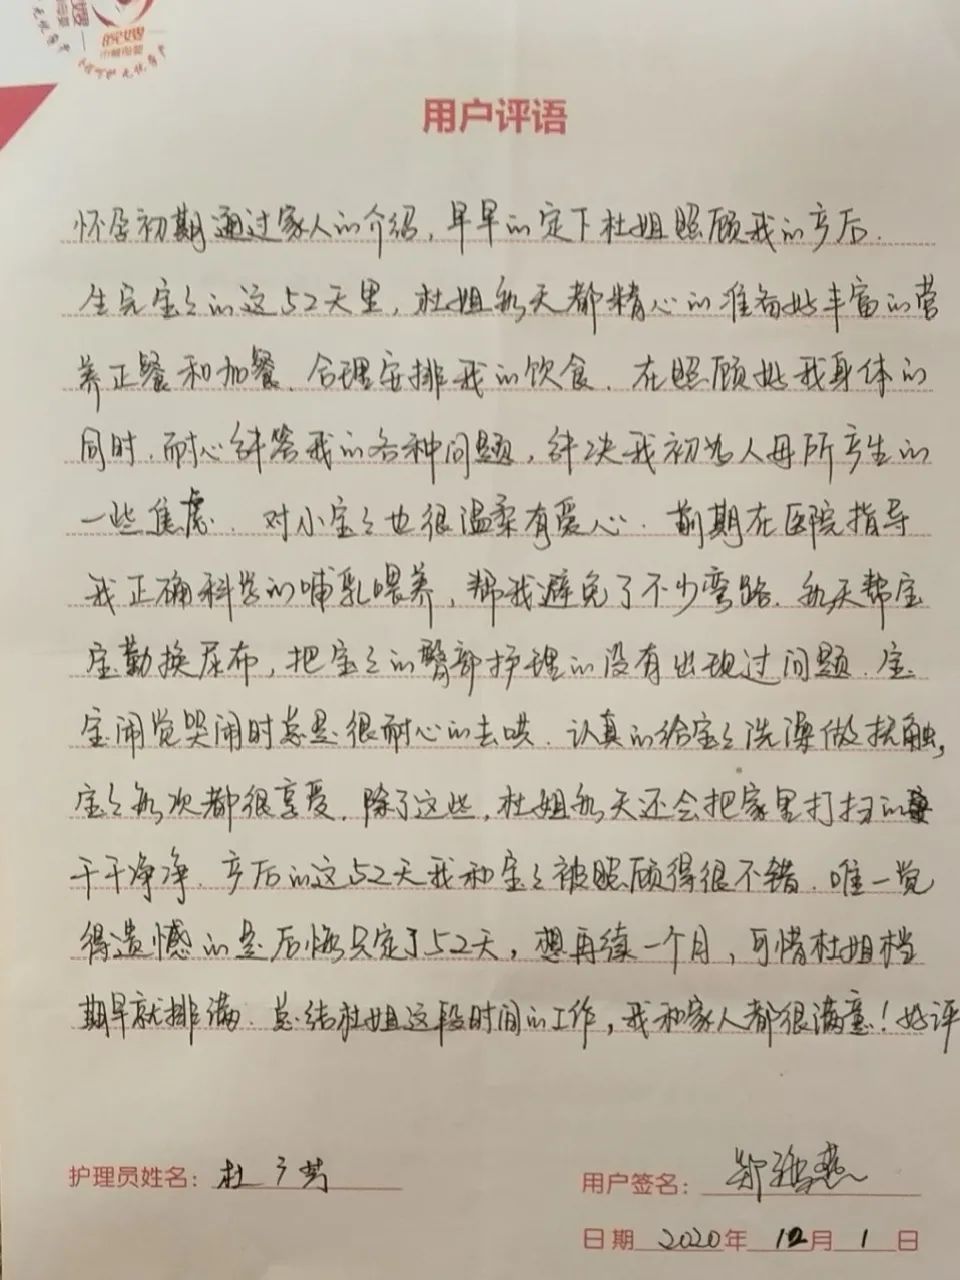 皖嫂
用户评语
怀孕初期通过家人的介绍，早早的定下杜姐照顾我的产后.
生完宝宝的这52天里，杜姐每天都精心的准备好丰富的营
养正餐和加餐、合理安排我的饮食. 在照顾好我身体的
同时.耐心解答我的各种问题，解决我初为人母所产生的
一些焦虑. 对小宝宝也很温柔有爱心. 前期在医院指导
我正确科学的哺乳喂养，帮我避免了不少弯路. 每天帮宝
宝勤换尿布，把宝宝的臀部护理的没有出现过问题. 宝
宝闹觉哭闹时总是很耐心的去哄. 认真的给宝宝洗澡做抚触,
宝宝每次都很享受. 除了这些，杜姐每天还会把家里打扫的
干干净净. 产后的这52天我和宝宝被照顾得很不错. 唯一觉
得遗憾的是后悔只定了52天，想再续一个月，可惜杜姐档
期早就排满. 总结杜姐这段时间的工作，我和家人都很满意！好评
护理员姓名：杜广芳
用户签名：郑雅燕
日期 2020年 12月 1日